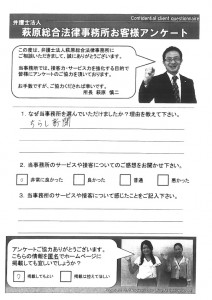 Confidential client questionnaire
弁護士法人
萩原総合法律事務所お客様アンケート
この度は、弁護士法人萩原総合法律事務所に
ご相談いただきまして、誠にありがとうございます。
当事務所では、接客力・サービス力を強化する目的で
皆様にアンケートのご協力を頂いております。
お手数ですが、ご協力くだされば幸いです。
所長 萩原 慎二
1. なぜ当事務所を選んでいただけましたか？理由を教えて下さい。
ちらし 新聞
2. 当事務所のサービスや接客についてのご感想をお聞かせ下さい。
非常に良かった 良かった 普通 悪かった
3. 当事務所のサービスや接客について感じたことをご記入下さい。
アンケートご協力ありがとうございます。
こちらの情報を匿名でホームページに
掲載しても宜しいでしょうか？
掲載してもよい 掲載は控えてほしい